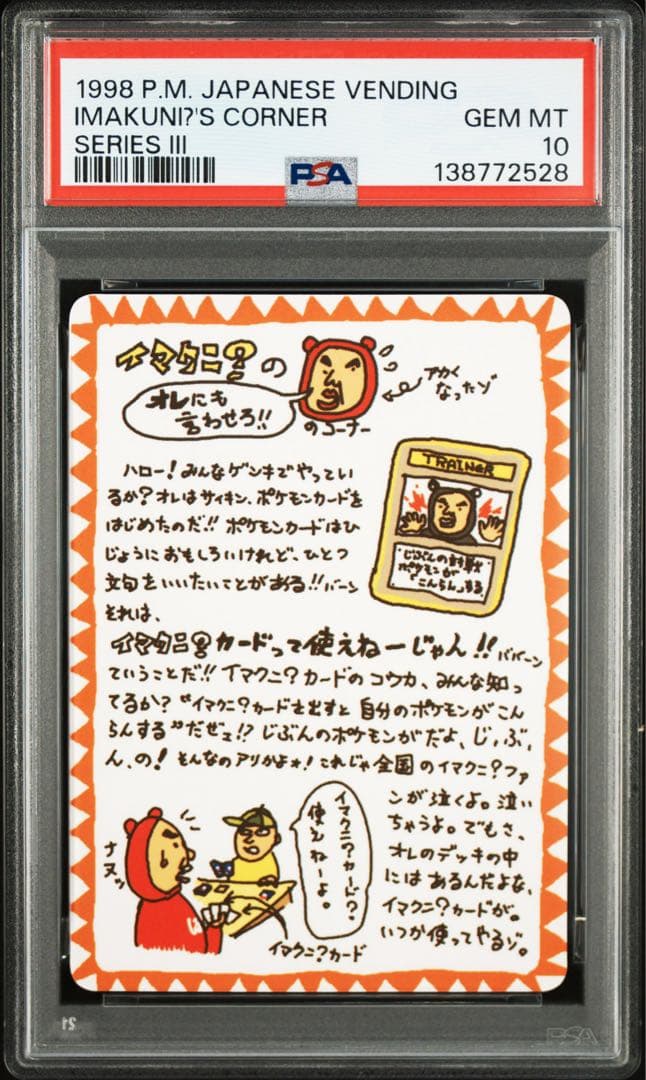 1998 P.M. JAPANESE VENDING
IMAKUNI?'S CORNER
GEM MT
SERIES III
10
PSA
138772528
イマクニ?の
オレにも
言わせろ!!
のコーナー
アカく
なったゾ
ハロー!みんなゲンキでやってい
るか?オレはサイキン、ポケモンカードを
はじめたのだ!!ポケモンカードはひ
じょうにおもしろいけれど、ひとつ
文句をいいたいことがある!!バーン
それは、
TRAINER
じぶんの
ポケモンが
「こんらん」する
イマクニ?カードって使えねーじゃん!!ババーン
ていうことだ!!イマクニ?カードのコウカ、みんな知っ
てるか?“イマクニ?カードを出すと自分のポケモンがこん
らんする”だぜェ!?じぶんのポケモンがだよ、じ、ぶ、
ん、の!そんなのアリかよォ!これじゃ全国のイマクニ?ファ
ンが泣くよ。泣い
ちゃうよ。でもさ、
オレのデッキの中
にはあるんだよな、
イマクニ?カードが。
いつか使ってやるゾ。
ナヌッ
イマクニ?カード?
使えねーよ。
イマクニ?カード
21
PSA